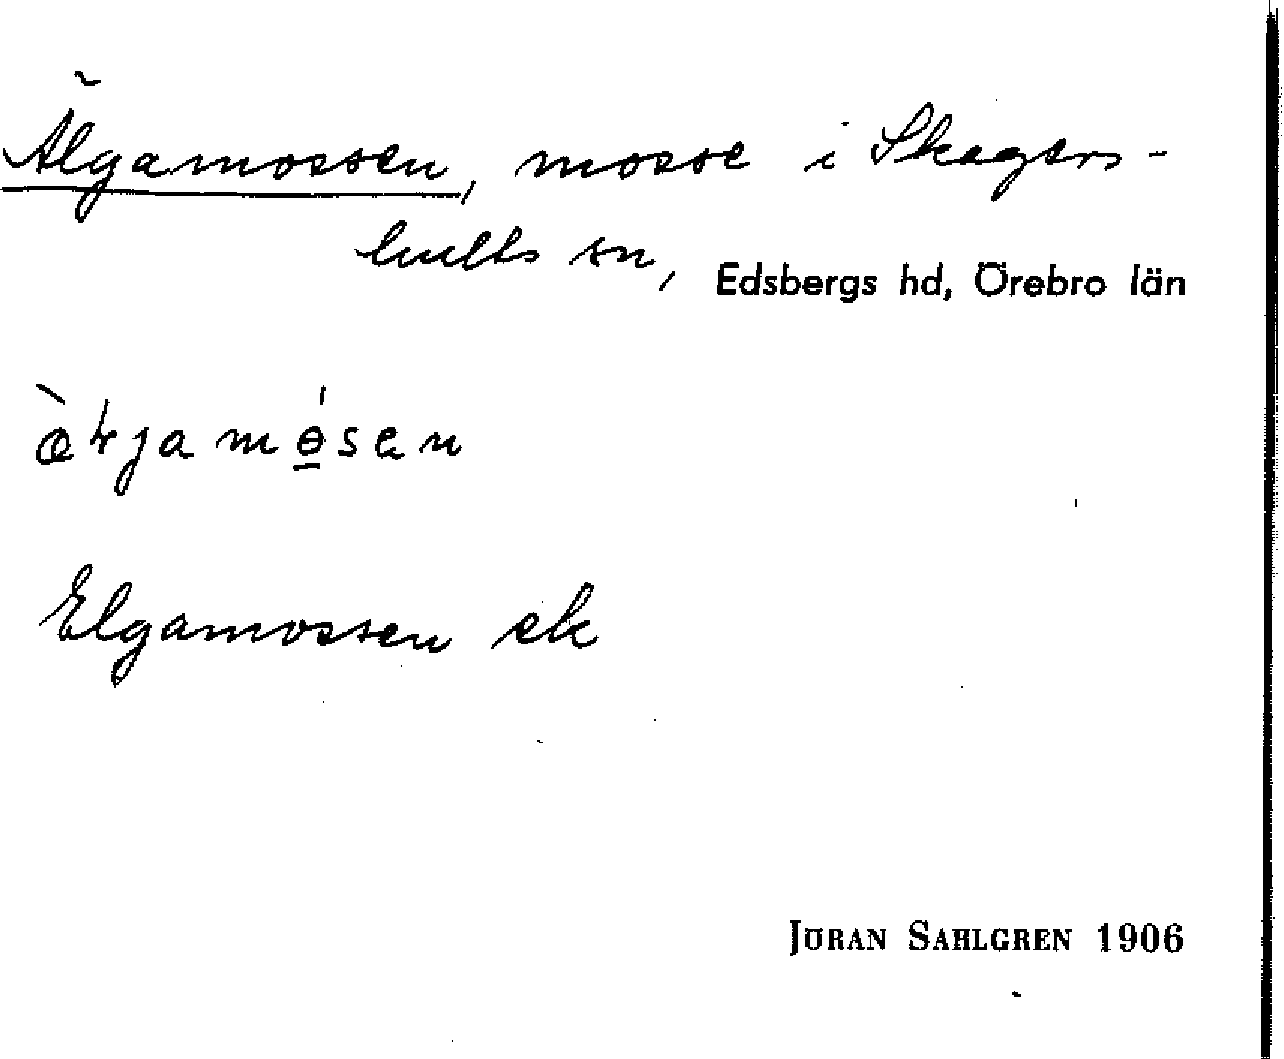 Älgamossen, mosse i Skagers-
hults sn, Edsbergs hd, Örebro län
Elgamossen ek
JÖRAN SAHLGREN 1906